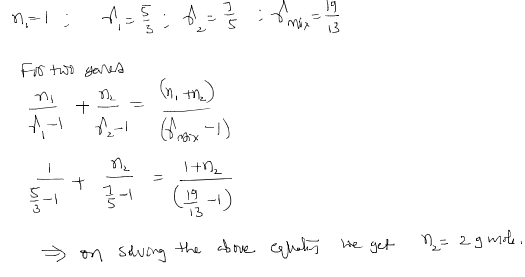 n₁=1 ; γ₁=5/3 ; γ₂=7/5 ; γmix=19/13
For two gases
n₁/(γ₁-1) + n₂/(γ₂-1) = (n₁+n₂)/(γmix-1)
1/(5/3-1) + n₂/(7/5-1) = (1+n₂)/(19/13-1)
⇒ on solving the above equation we get n₂= 2 g mole.